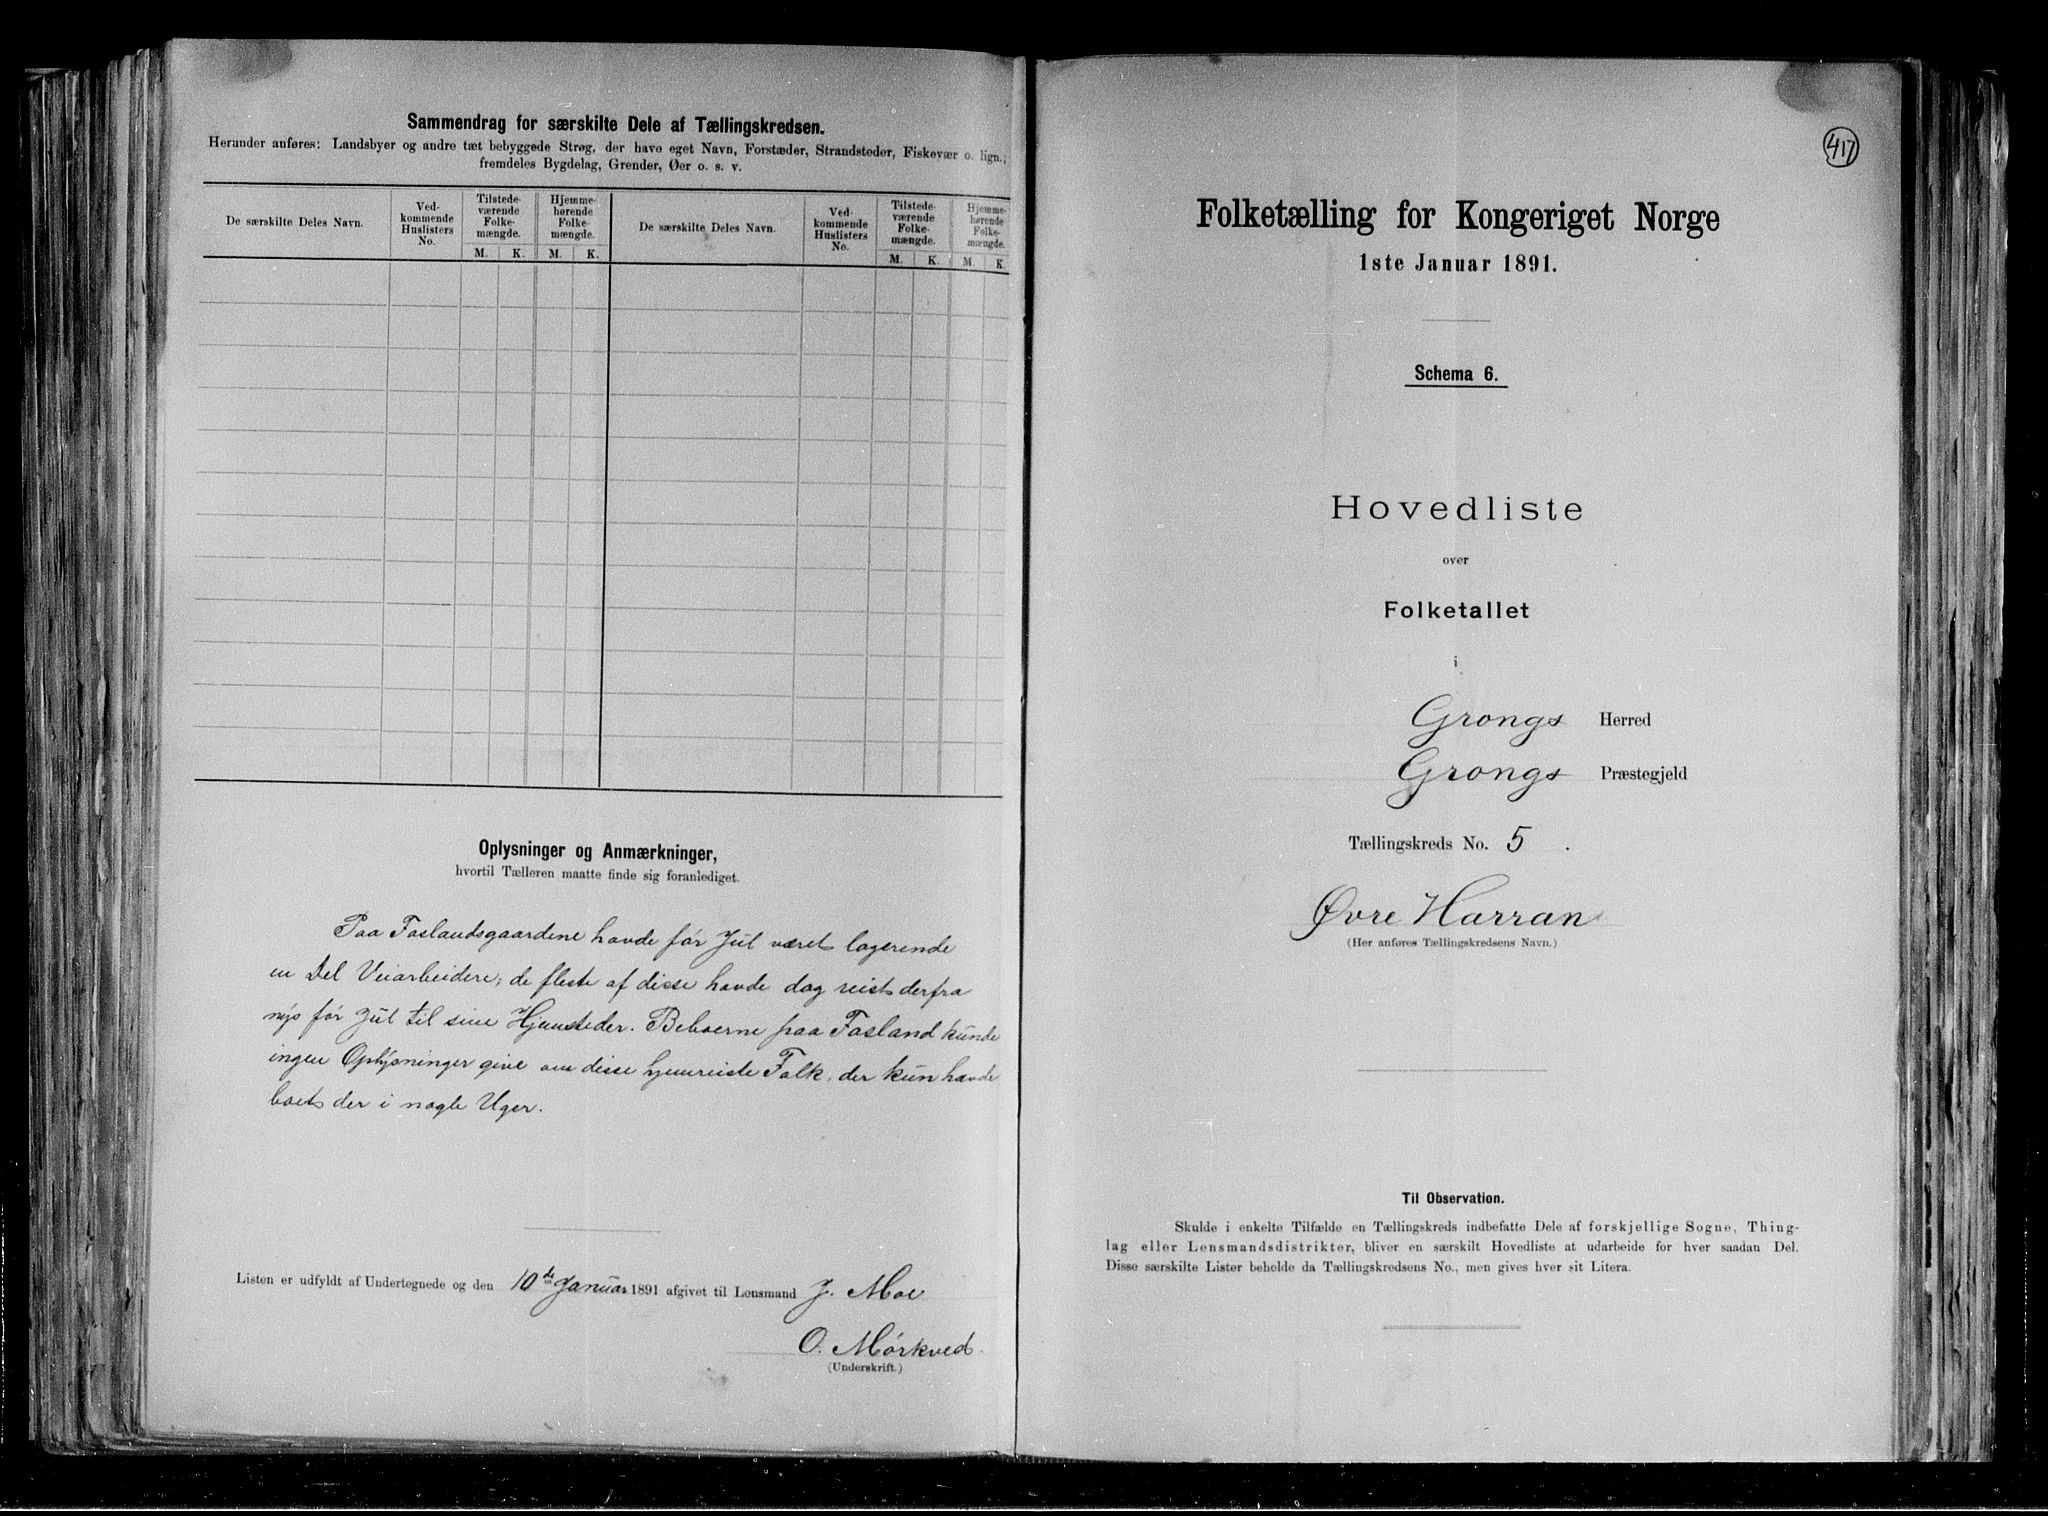 Sammendrag for særskilte Dele af Tællingskredsen.
Herunder anføres: Landsbyer og andre tæt bebyggede Strøg, der have eget Navn, Forstæder, Strandsteder, Fiskevær o. lign.;
fremdeles Bygdelag, Grender, Øer o. s. v.
De særskilte Deles Navn.
Ved-
kommende
Huslisters
No.
Tilstede-
værende
Folke-
mængde.
M. K.
Hjemme-
hørende
Folke-
mængde.
M. K.
De særskilte Deles Navn.
Ved-
kommende
Huslisters
No.
Tilstede-
værende
Folke-
mængde.
M. K.
Hjemme-
hørende
Folke-
mængde.
M. K.
Oplysninger og Anmærkninger,
hvortil Tælleren maatte finde sig foranlediget.
Paa Foslandsgaardene havde før Jul været logerende
en Del Veiarbeidere; de fleste af disse havde dog reist derfra
nys før Jul til sine Hjemsteder. Beboerne paa Fosland kunde
ingen Oplysninger give om disse hjemreiste Folk, der kun havde
boet der i nogle Uger.
Listen er udfyldt af Undertegnede og den 10de Januar 1891 afgivet til Lensmand J. Moe
O. Mørkved.
(Underskrift.)
417
Folketælling for Kongeriget Norge
1ste Januar 1891.
Schema 6.
Hovedliste
over
Folketallet
i
Grongs Herred
Grongs Præstegjeld
Tællingskreds No. 5.
Øvre Harran
(Her anføres Tællingskredsens Navn.)
Til Observation.
Skulde i enkelte Tilfælde en Tællingskreds indbefatte Dele af forskjellige Sogne, Thing-
lag eller Lensmandsdistrikter, bliver en særskilt Hovedliste at udarbeide for hver saadan Del.
Disse særskilte Lister beholde da Tællingskredsens No., men gives hver sit Litera.